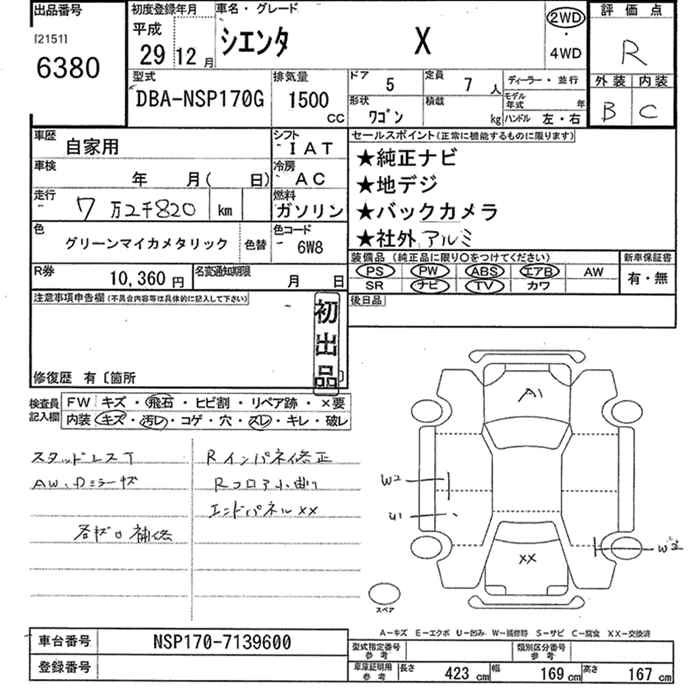 出品番号
[21511]
6380
初度登録年月
平成 29年 12月
車名・グレード
シエンタ X
2WD
・
4WD
評価点
R
外装 内装
B C
型式
DBA-NSP170G
排気量
1500 CC
ドア 5
定員 7人
ディーラー・並行
形状 ワゴン
積載 kg
モデル年式 年
ハンドル 左・右
車歴 自家用
シフト IAT
車検 年 月( 日)
冷房 AC
走行 7万2千820 km
燃料 ガソリン
色 グリーンマイカメタリック
色替
色コード 6W8
R券 10,360円
名変通知期限 月 日
セールスポイント(正常に機能するものに限ります)
★純正ナビ
★地デジ
★バックカメラ
★社外アルミ
装備品(純正品に限り○をつけてください)
PS PW ABS エアB AW
SR ナビ TV カワ
新車保証書
有・無
後日品
注意事項申告欄(不具合内容等は具体的に記入して下さい)
初出品
修復歴 有〔箇所 〕
検査員記入欄
FW キズ・飛石・ヒビ割・リペア跡・×要
内装 キズ・汚レ・コゲ・穴・スレ・キレ・破レ
スタッドレスT
AW、Dミラーキズ
各キズ 補修
Rインパネ修正
Rフロア小曲り
エンドパネルXX
A1
W2
U1
XX
W2
スペア
A-キズ E-エクボ U-凹み W-補修跡 S-サビ C-腐食 XX-交換済
車台番号 NSP170-7139600
登録番号
型式指定番号 参考
類別区分番号 参考
車庫証明用 参考
長さ 423 cm 幅 169 cm 高さ 167 cm